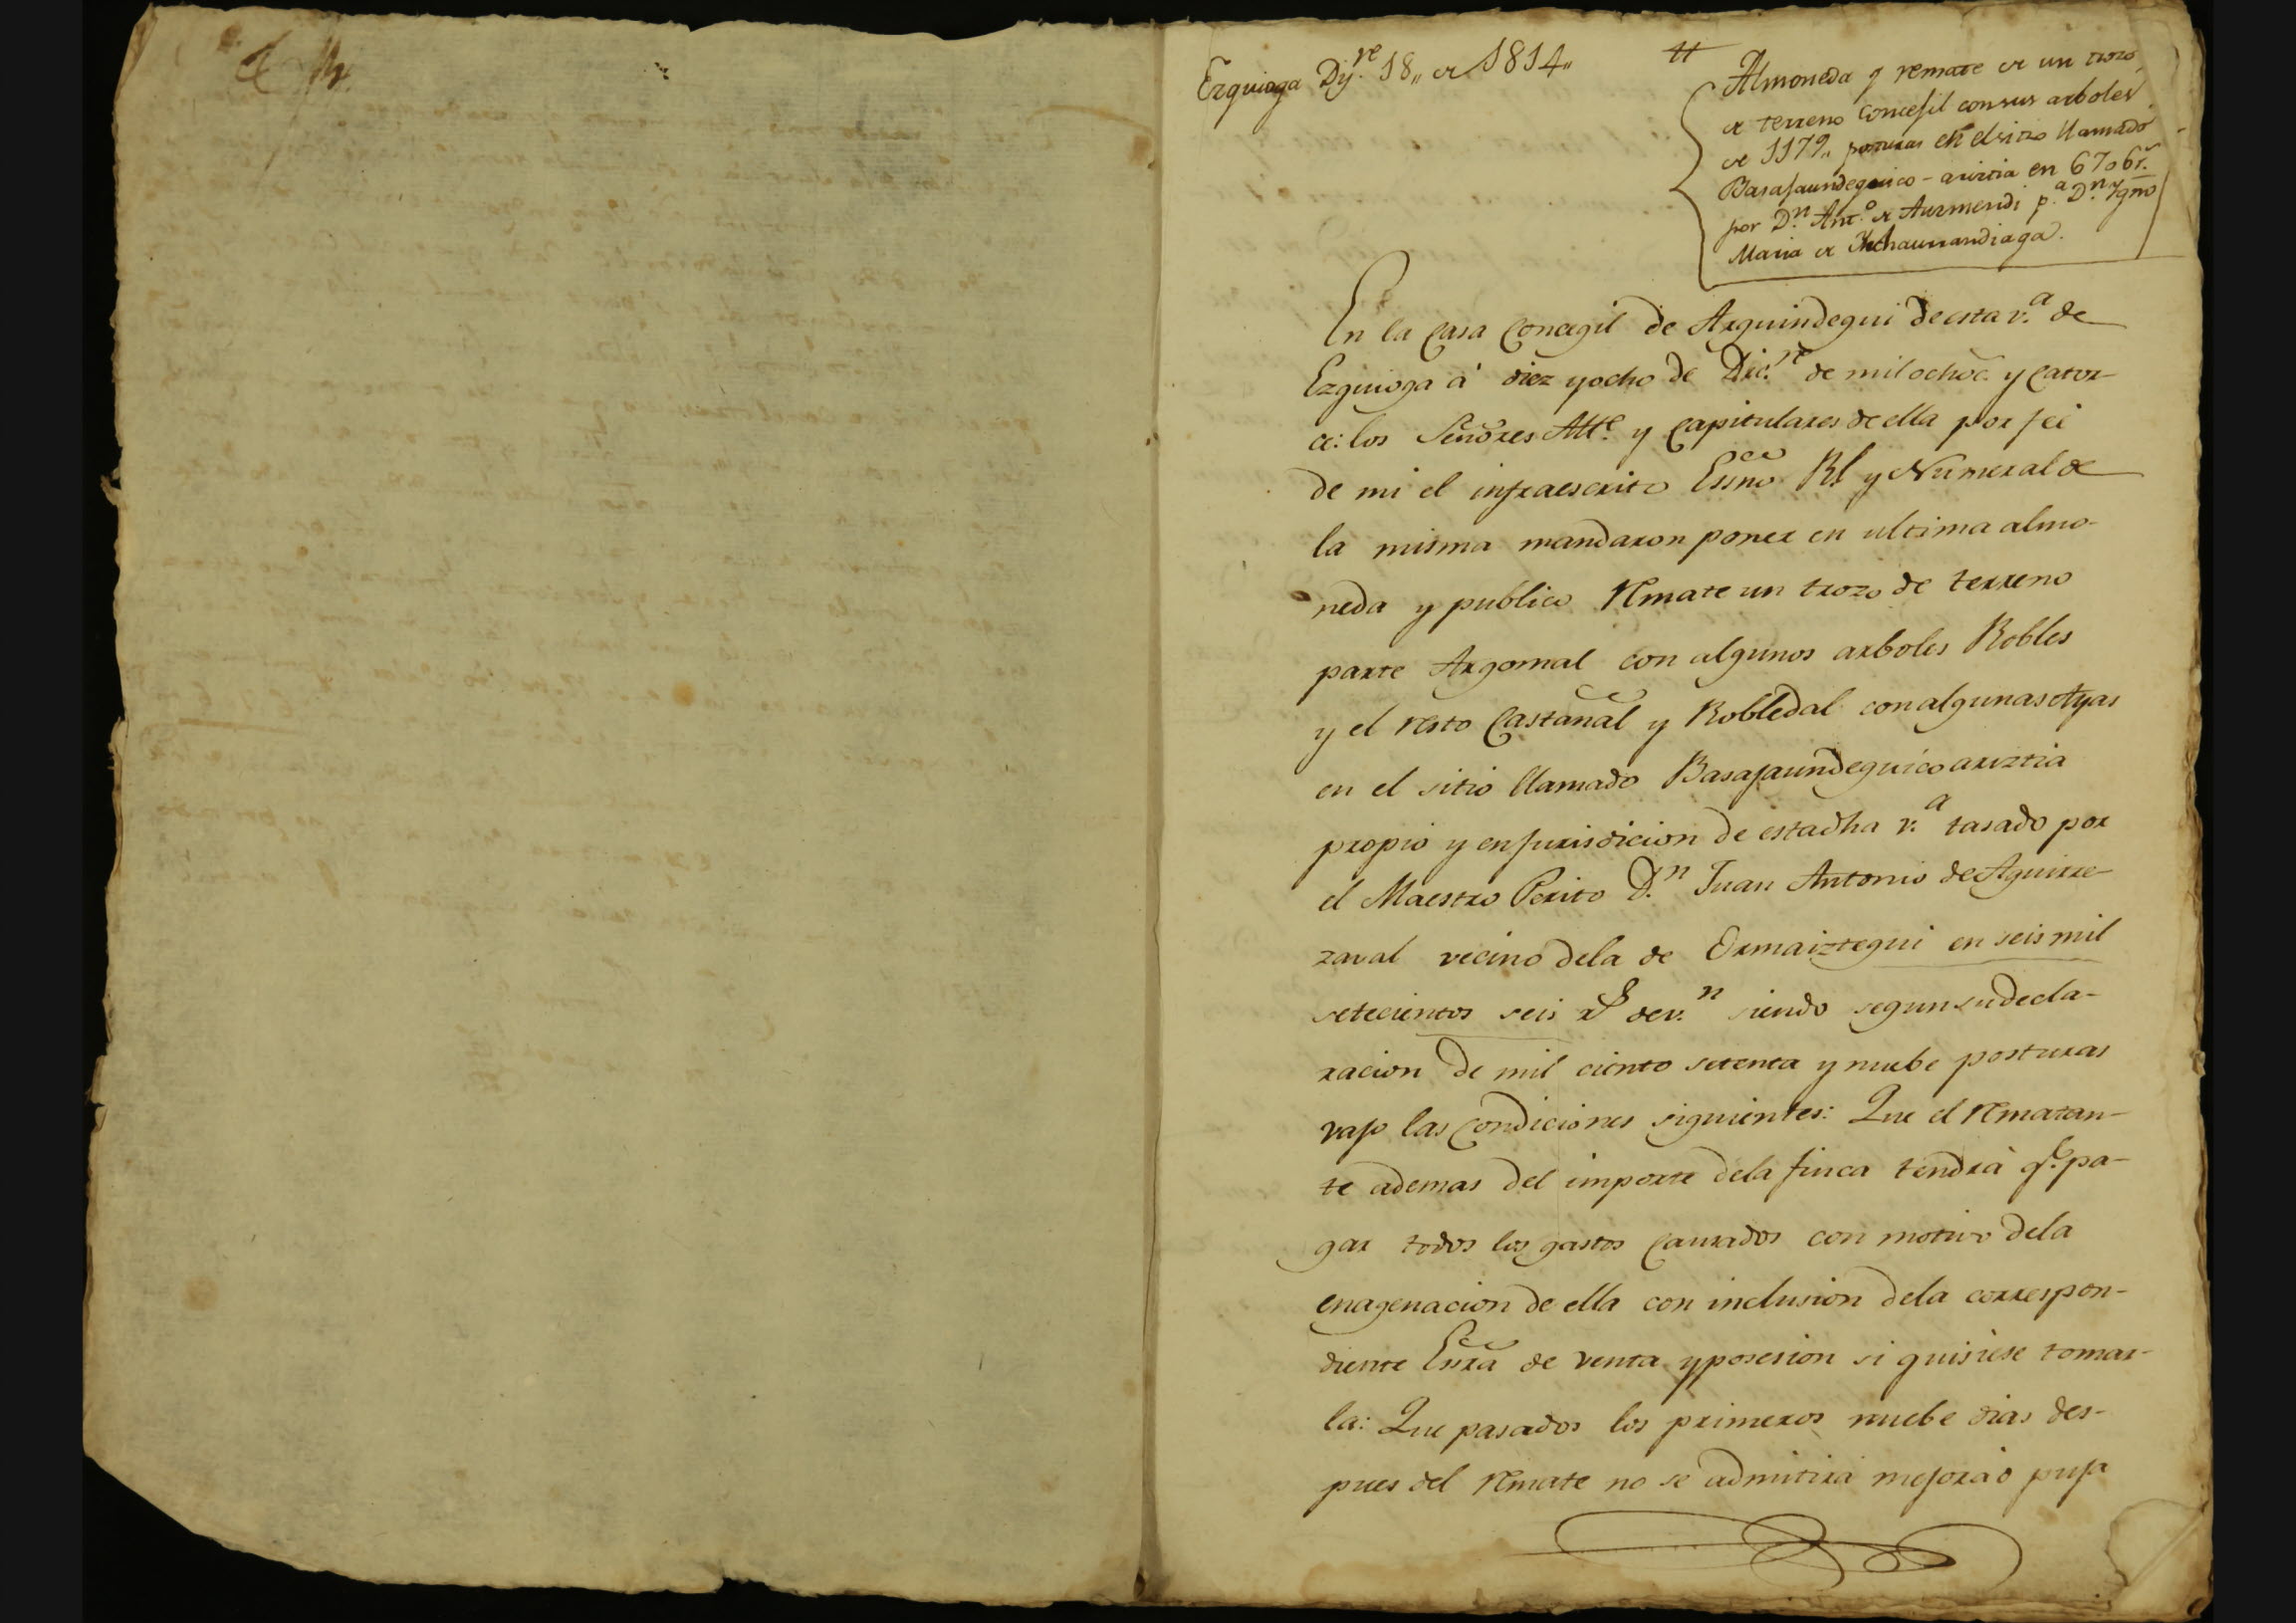 Ezquioga Dizre 18,, de 1814,,
Almoneda y remate de un trozo
de terreno Concejil con sus arboles
de 1179,, posturas en el sitio llamado
Basajaundeguico-ariztia en 6706 r.
por Dn. Anto. de Aurmendi pa. Dn. Ygno
Maria de Echaurrandiaga.
En la Casa Concegil de Arguindegui de esta va. de
Ezquioga á diez y ocho de Dicre. de mil ochoc. y Cator-
ce: los Señores Alle. y Capitulares de ella por fe
de mi el infraescrito Essno Rl y Numeral de
la misma mandaron poner en ultima almo-
neda y publico Remate un trozo de terreno
parte Argomal con algunos arboles Robles
y el resto Castañal y Robledal con algunas Ayas
en el sitio llamado Basajaundeguico ariztia
propio y en jurisdicion de esta dha va. tasado por
el Maestro Perito Dn. Juan Antonio de Aguirre-
zaval vecino dela de Ormaiztegui en seis mil
setecientos seis rs de vn. siendo segun su decla-
racion de mil ciento setenta y nuebe posturas
vajo las Condiciones siguientes: Que el Rematan-
te ademas del importe dela finca tendrá qe. pa-
gar todos los gastos Causados con motivo dela
enagenacion de ella con inclusion dela correspon-
diente Essra de venta y posesion si quisiese tomar-
la: Que pasados los primeros nuebe dias des-
pues del Remate no se admitirá mejora ó puja